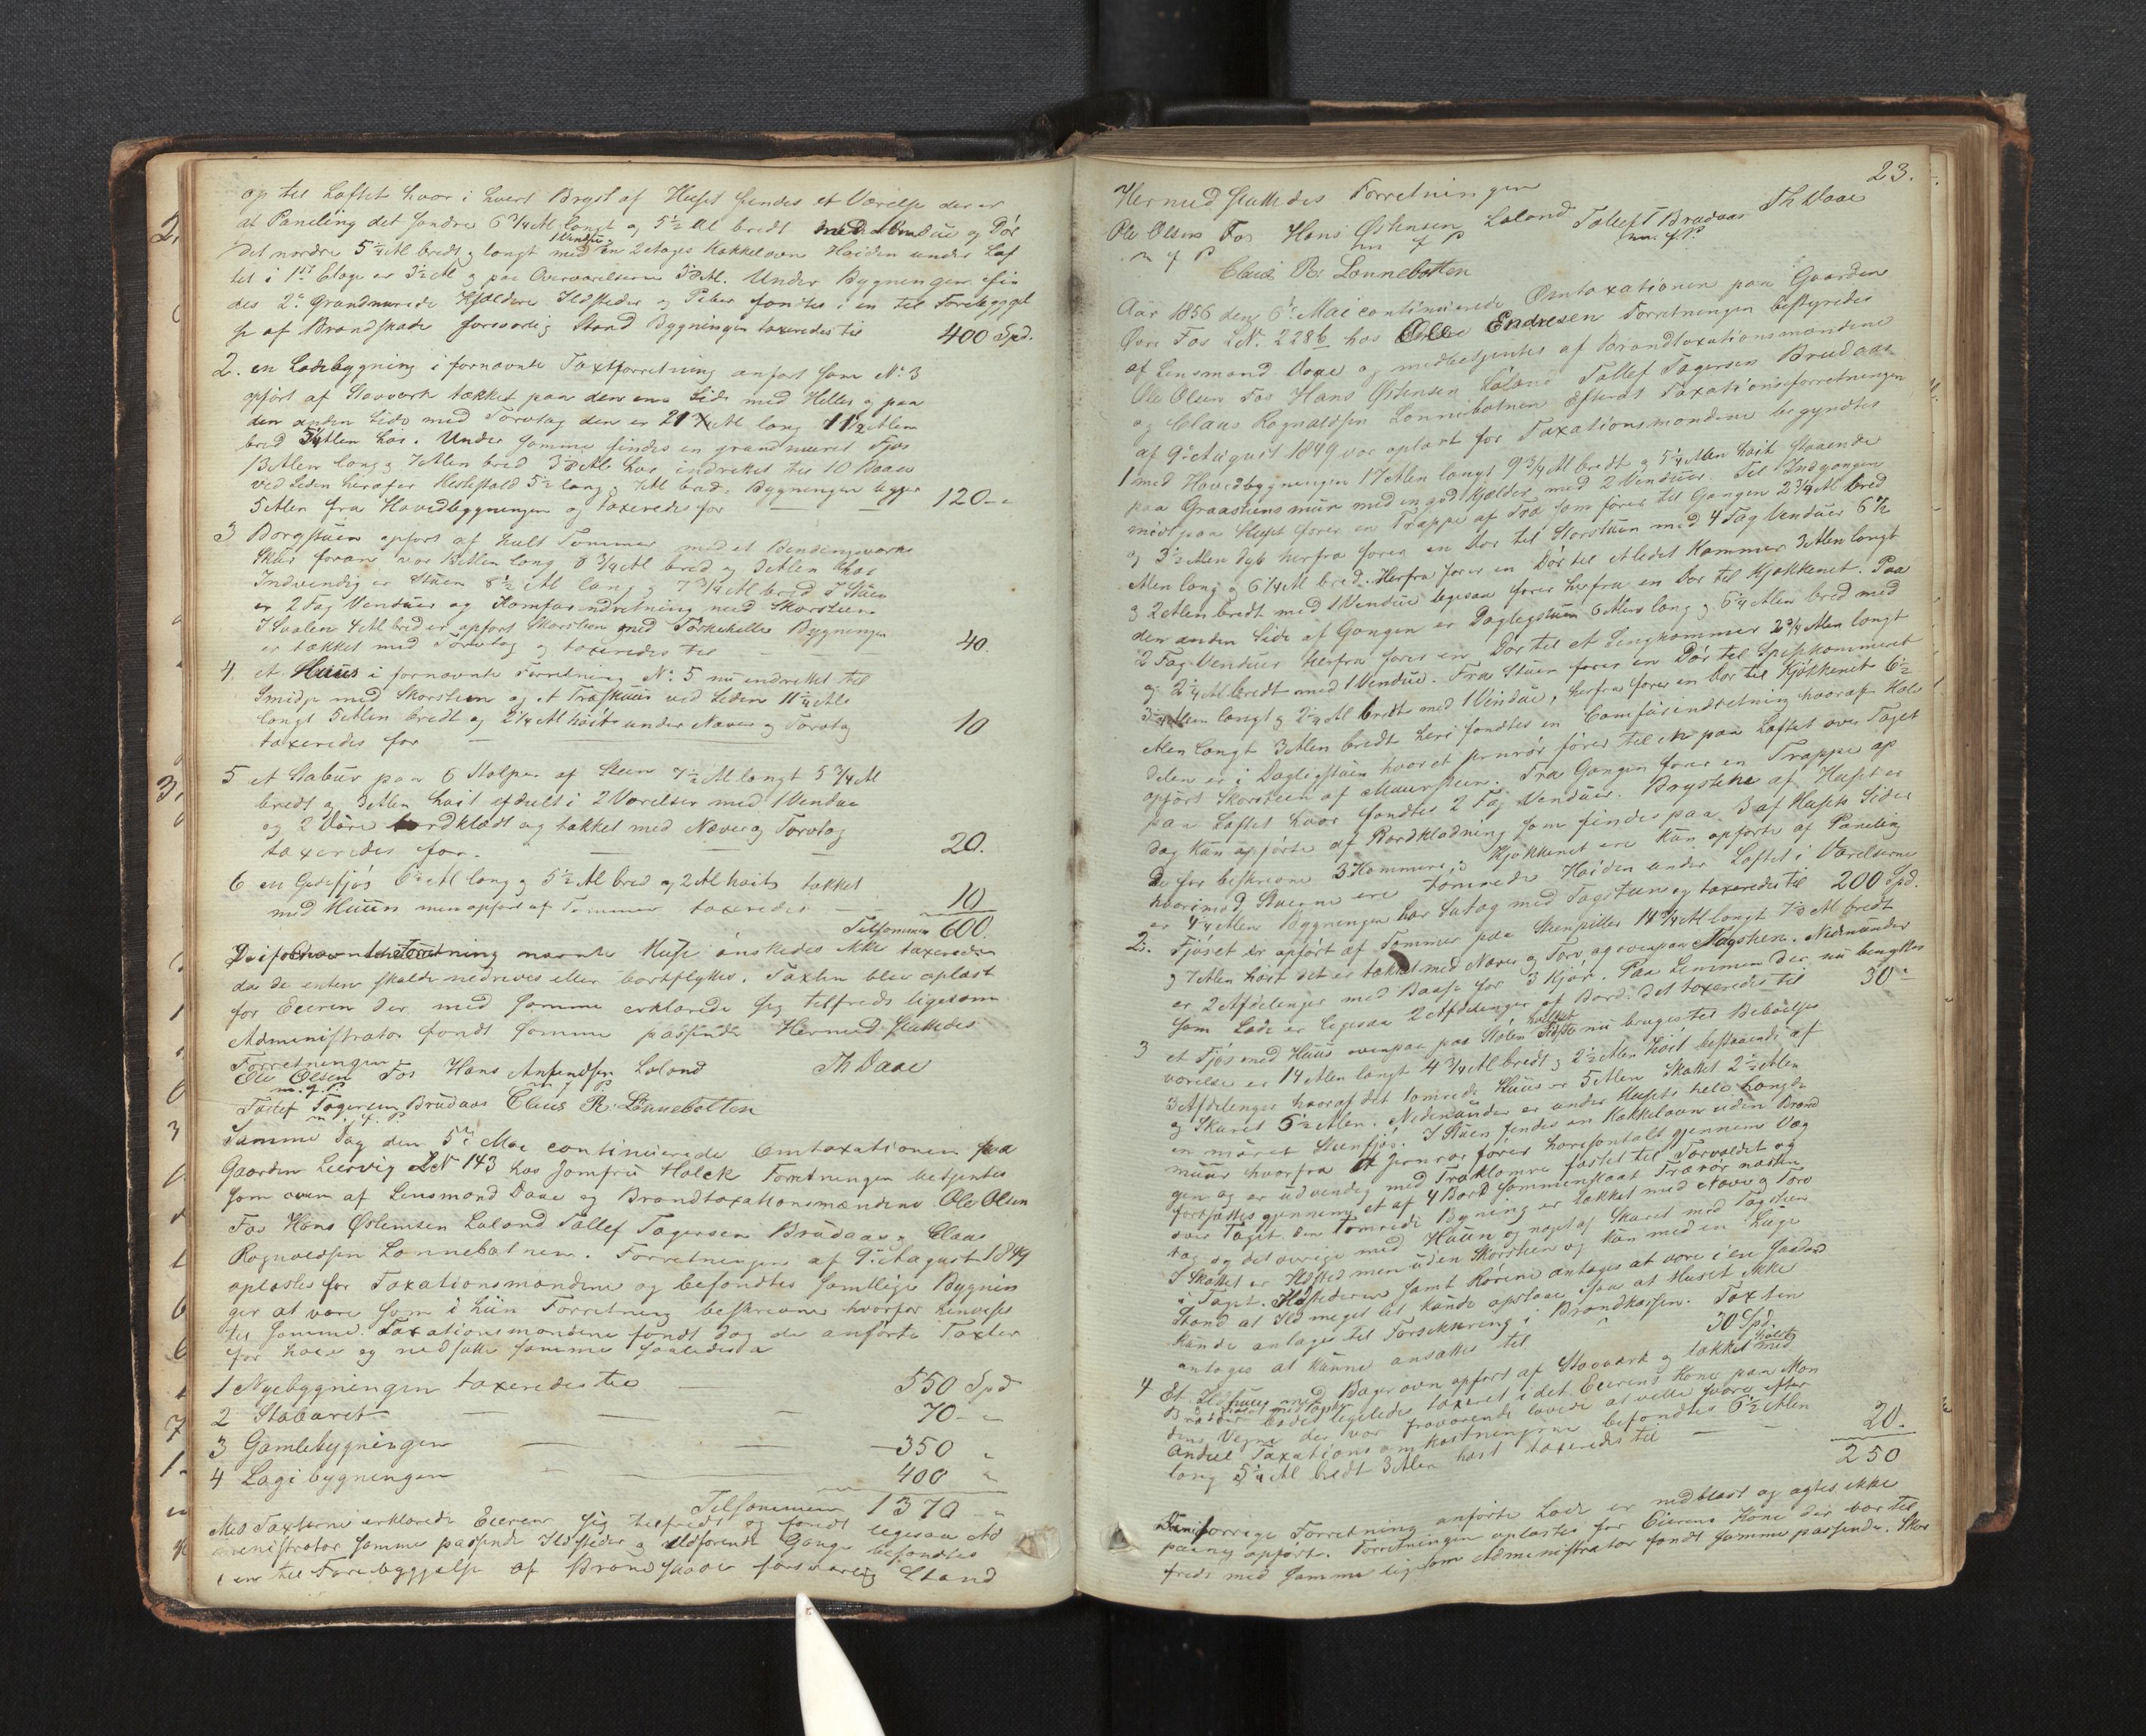 op til Loftet hvor i hvert Bryst af Huset findes et Værelse der er
af Paneling det søndre 6 3/4 Al langt og 5 1/2 Al bredt med Vindue og Dør
det nordre 5 1/4 Al bredt og langt med 1 Vindue en 2 etages Kakkelovn Høiden under Lof
tet i 1ste Etage er 3 1/2 Al og paa Overværelserne 3 Al. Under Bygningen fin
des 2de Grundmurede Kjeldere Ildsteder og Piber fandtes i en til Forebyggel
se af Brandskade forsvarlig Stand Bygningen taxeredes til 400 Spd.
2. en Ladebygning i fornævnte Taxtforretning anført som No 3
opført af Stavværk tækket paa den ene Side med Heller og paa
den anden Side med Torvtag den er 21 3/4 Al lang 11 1/2 Alen
bred 5 1/4 Alen høi. Under samme findes en grundmuret Fjøs
13 Alen lang og 7 Alen bred 3 Al høi indrettet til 10 Baase
ved Siden heraf er Hestestald 5 1/2 lang og 7 Al bred. Bygningen ligger
5 Alen fra Hovedbygningen og taxeredes for 120 - "
3 Borgstuen opført af hult Tømmer med et Bindingsværks
Skur foran er Alen lang 8 3/4 Al bred og 3 Alen høi
Indvendig er Stuen 8 1/2 Al lang og 7 3/4 Al bred I Stuen
er 2 Fag Venduer og Komfurindretning med Skorsteen
I Svalen 4 Al bred er opført Skorsteen med Tørkehelle Bygningen
er tækket med Torvtag og taxeredes til 40.
4 et Huus i fornævnte Forretning No 5 nu indrettet til
Smidje med Skorsteen og et Træskuur ved Siden 11 1/4 Al
langt 5 Alen bredt og 2 1/4 Al høit under Næver og Torvtag
taxeredes for 10
5 et Stabur paa 6 Stolper af Steen 7 1/2 Al langt 5 3/4 Al
bredt og 3 Alen høit afdeelt i 2 Værelser med 1 Vendue
og 2 Døre bordklædt og tækket med Næver og Torvtag
taxeredes for. 20.
6 en Gedefjøs 6 1/2 Al lang og 5 1/2 Al bred og 2 Al høit tækket
med Huun men opført af Tømmer taxeredes 10
Tilsammen 600.
De i fornævnte Forretning nævnte Huse ønskedes ikke taxerede
da de enten skulde nedrives eller bortflyttes. Taxten blev oplæst
for Eieren der med samme erklærede sig tilfreds ligesom
Administrator fandt samme passende Hermed sluttedes
Forretningen
Ole Olsen Fos Hans Loland Th Daae
m. f. P. m f P
Tollef Tagersen Brudaas Claus R. Lønnebotten
m. f. P.
Samme Dag den 5te Mai continuerede Omtaxationen paa
Gaarden Leervig LN 143 hos Jomfru Holck Forretningen betjentes
som oven af Lensmand Daae og Brandtaxationsmændene Ole Olsen
Fos Hans Østensen Loland Tollef Tagersen Brudaas og Claus
Rognaldsen Lønnebotnen. Forretningen af 9de August 1849
oplæstes for Taxationsmændene og befandtes samtlige Bygnin
ger at være som i hiin Forretning beskrevne hvorfor henvises
til samme. Taxationsmændene fandt dog de anførte Taxter
for høie og nedsatte samme saaledes
1 Nyebygningen taxeredes til 550 Spd
2 Staburet 70 - "
3 Gamlebygningen 350 "
4 Lagebygningen 400 "
Tilsammen 1370 - "
Med Taxterne erklærede Eieren sig tilfreds og fandt ligesaa Ad
ministrator samme passende Ildsteder og Ildførende Gange befandtes
i en til Forebyggelse af Brandskade forsvarlig Stand
23.
Hermed sluttedes Forretningen
Ole Olsen Fos Hans Østensen Loland Tollef T Brudaas Th Daae
m f P m f P m. f. P.
Claus R. Lønnebotten
Aar 1856 den 6te Mai continuerede Omtaxationen paa Gaarden
Øvre Fos LN. 228b hos Ole Endresen Forretningen bestyredes
af Lensmand Daae og medbetjentes af Brandtaxationsmændene
Ole Olsen Fos Hans Østensen Loland Tollef Tagersen Brudaas
og Claus Rognaldsen Lønnebotnen Efterat Taxationsforretningen
af 9de August 1849 var oplæst for Taxationsmændene begyndtes
1 med Hovedbygningen 17 Alen langt 9 3/4 Al bredt og 5 1/4 Alen høit staaende
paa Graasteensmur med en god Kjelder med 2 Venduer. Til Indgangen
midt paa Huset fører en Trappe af Træ som fører til Gangen 2 3/4 Al bred
og 3 1/2 Alen dyb herfra fører en Dør til Storstuen med 4 Fag Venduer 6 1/2
Alen lang og 6 1/4 Al bred. Herfra fører en Dør til et lidet Kammer 3 Alen langt
og 2 Alen bredt med 1 Vendue ligesaa fører herfra en Dør til Kjøkkenet. Paa
den anden Side af Gangen er Dagligstuen 6 Alen lang og 6 1/4 Alen bred med
2 Fag Venduer herfra fører en Dør til et Sengkammer 2 3/4 Alen langt
og 2 1/4 Al bredt med 1 Vendue. Fra Stuen fører en Dør til Spisekammeret
3 1/4 Alen langt og 2 1/4 Al bredt med 1 Vendue, herfra fører en Dør til Kjøkkenet 6 1/2
Alen langt 3 Alen bredt heri fandtes en Comfurindretning hvoraf Hale
delen er i Dagligstuen hvor et Jernrør fører til en paa Loftet over Taget
opført Skorsteen af Muursteen. Fra Gangen fører en Trappe op
paa Loftet hvor fandtes 2 Fag Venduer. Brystene af Huset er
dog kun opførte af Bordklædning som findes paa 3 af Husets Sider
De før beskrevne 3 Kammere og Kjøkkenet ere kun opførte af Paneling
hvorimod Stuerne ere tømrede Høiden under Loftet i Værelserne
er 4 1/4 Alen Bygningen har Sutag med Tagsteen og taxeredes til 200 Spd.
2. Fjøset er opført af Tømmer paa Steenpiller 14 3/4 Al langt 7 1/2 Al bredt
og 7 Alen høit det er tækket med Næver og Torv og ovenpaa Tagsteen. Nedenunder
er 2 Afdelinger med Baase for 3 Kjør. Paa Lemmen der nu benyttes
som Lade er ligesaa 2 Afdelinger af Bord. det taxeredes til 30 "
3 et Fjøs med Huus ovenpaa paa Stølen hvilket sidste nu bruges til Beboelses
værelse er 14 Alen langt 4 3/4 Al bredt og 2 1/2 Alen høit bestaaende af
3 Afdelinger hvoraf det tømrede Huus er 5 Alen Skottet 2 1/2 Alen
og Skuret 6 1/2 Alen. Nedenunder er under Husets hele Længde
en muret Steenfjøs. I Stuen findes en Kakkelovn uden Brand
muur hvorfra et Jernrør fører horisontalt gjennem Væg
gen og er udvendig med Træklamre fæstet til Torvoldet og
fortsættes gjennem et af 4 Bord sammenslaaet Trærør næsten
over Taget. Den tømrede Bygning er tækket med Næver og Torv
tag og det øvrige med Huun og noget af Skuret med Tagsteen
I Skottet er Ildsted men uden Skorsteen og kun med en Luge
i Taget. Ildstederne samt Rørene antages at være i en saadan
Stand at Ild meget let kunde opstaae saa at Huset ikke
kunde antages til Forsikkring i Brandkassen. Taxten
antages at kunne ansættes til 30 Spd.
4 Et Ildhuus med Bagerovn opført af Stavværk og tækket med
blev ligeledes taxeret i det Eierens Kone paa Man
dens Vegne der var fraværende lovede at ville svare efter
Andeel Taxationsomkostningerne befandtes 6 1/2 Alen
lang 5 1/4 Al bredt 3 Alen høit taxeredes til 20.
250
Den i forrige Forretning anførte Lade er nedblæst og agtes ikke
paany opført. Forretningen oplæstes for Eierens Kone der var til
freds med samme ligesom Administrator fandt samme passende. Skor